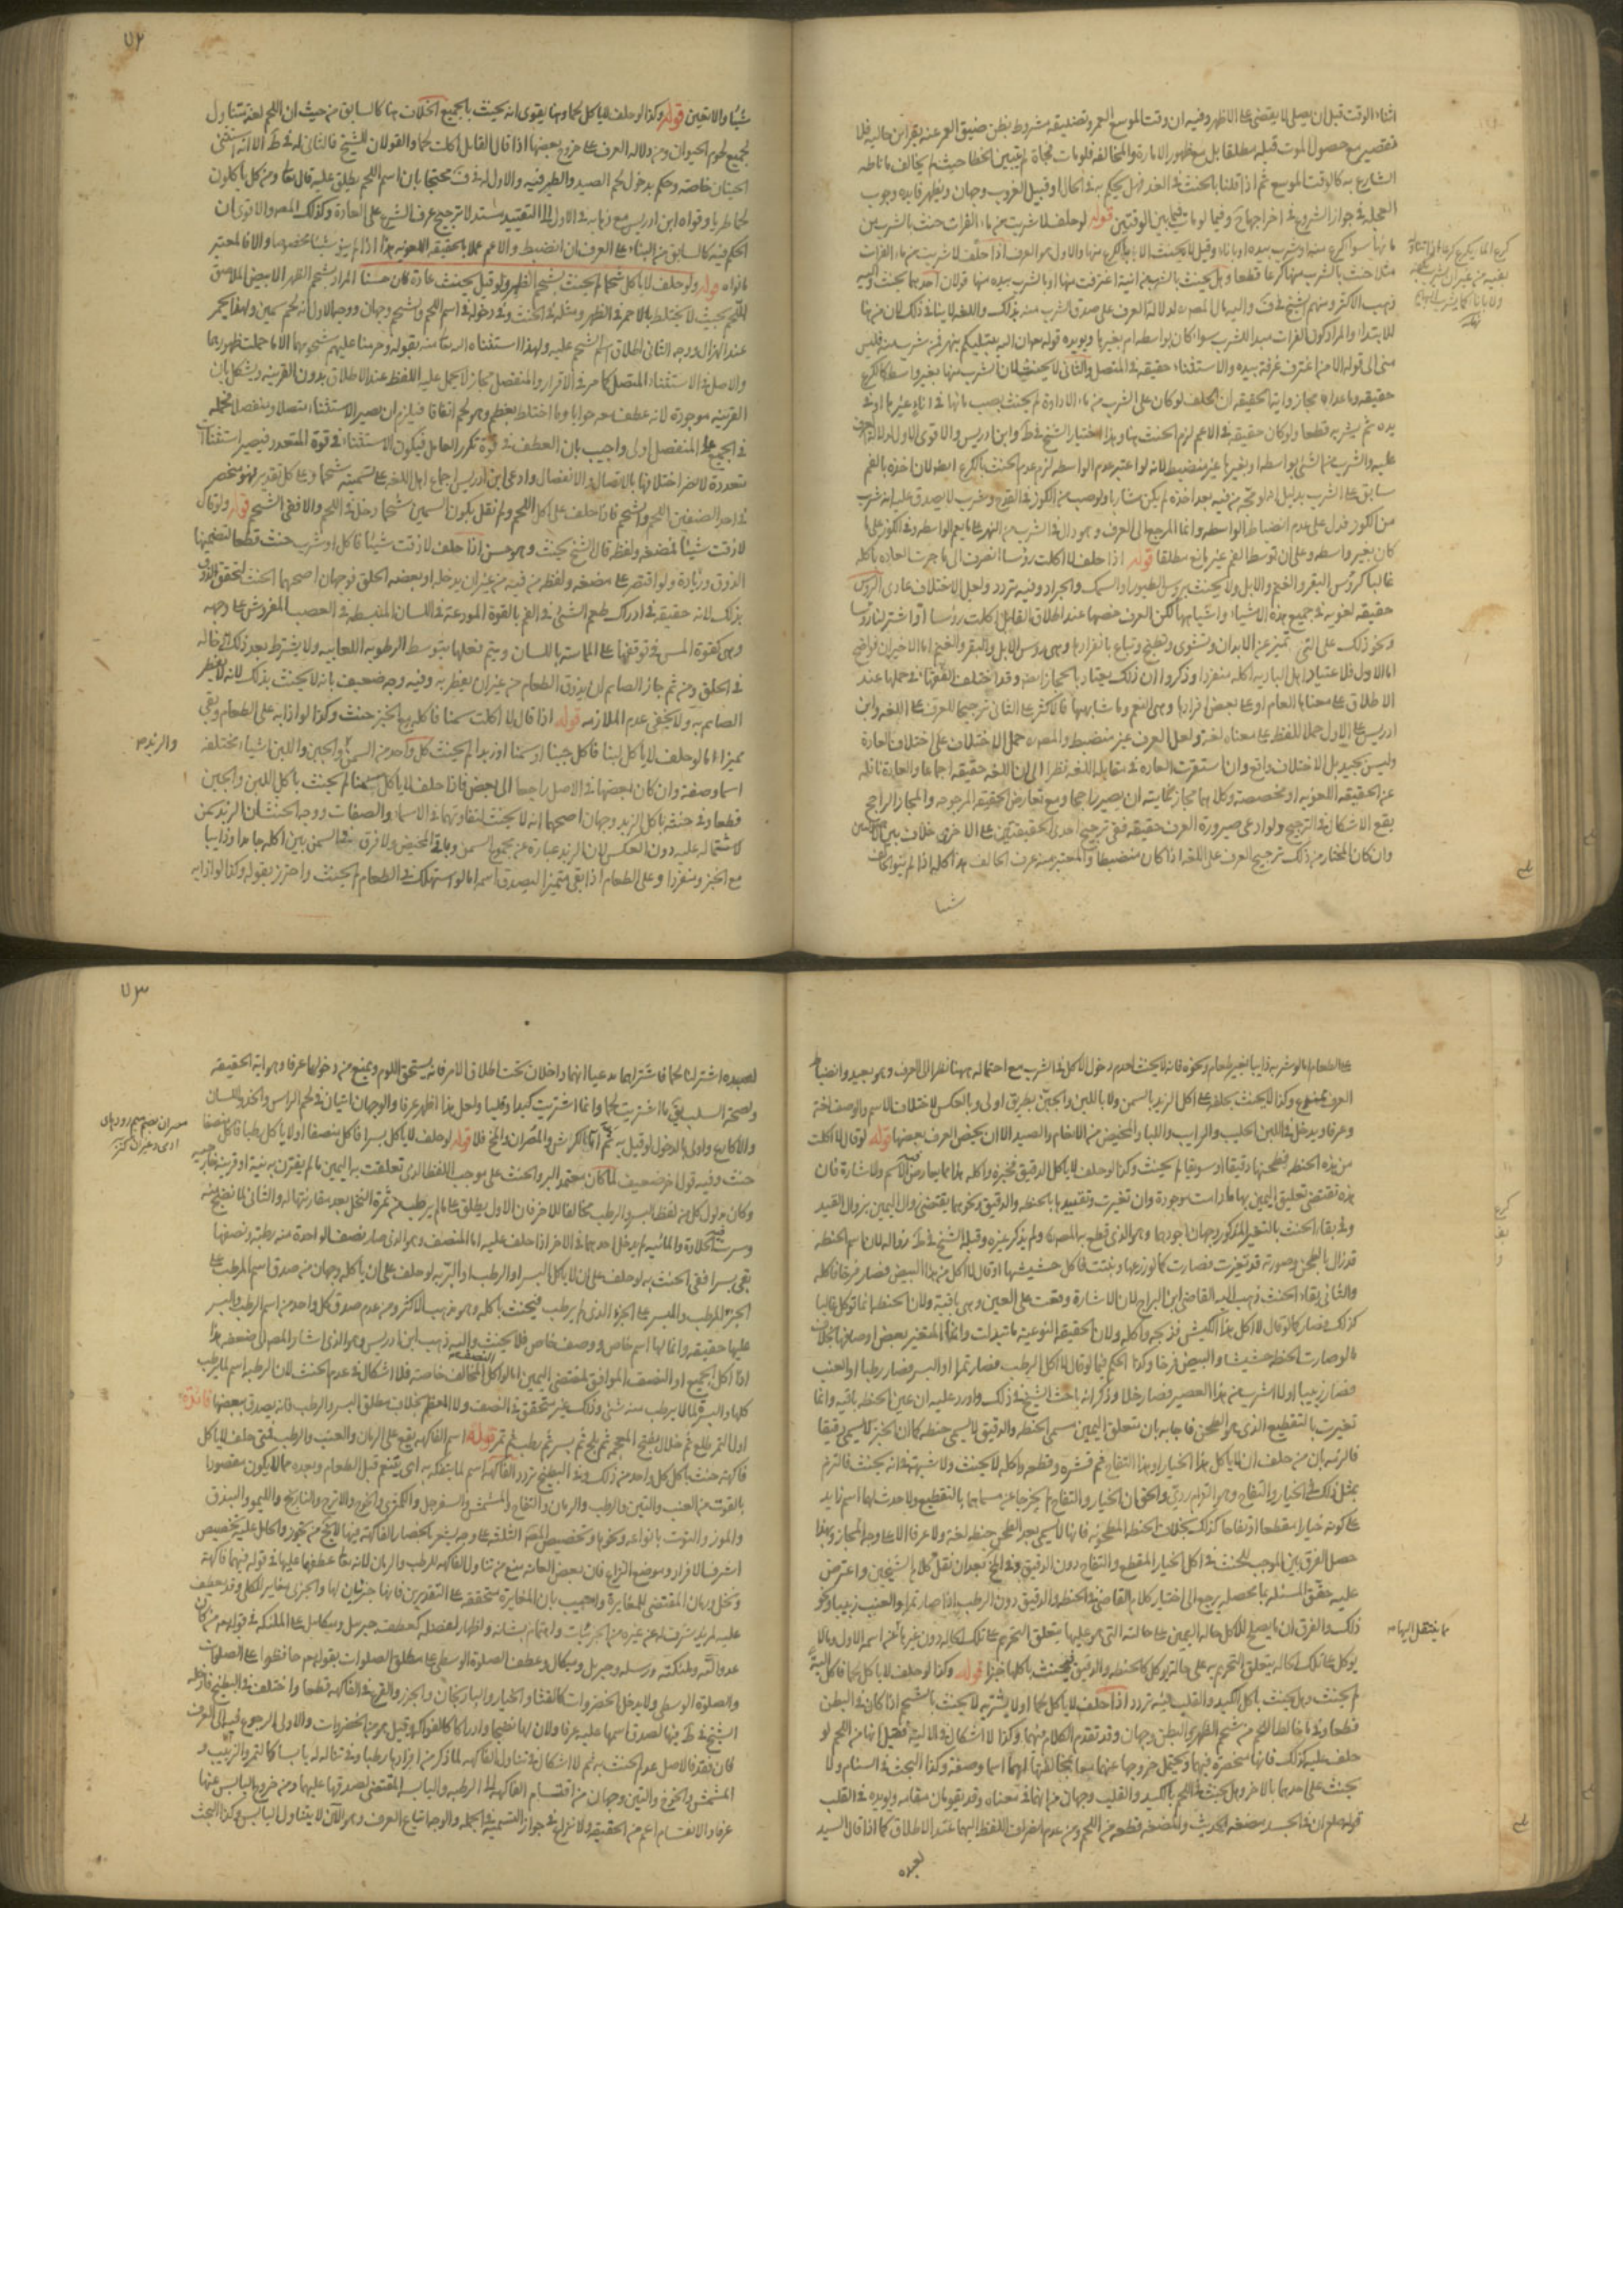 اثناء الوقت قبل ان يصلى لا يقتضى على الاظهر وفيه ان وقت الموسع العمر وتضليقه مشروط بظن ضيق العمر عنه بقراين حاليه فلا
تقصير مع حصول الموت قبله مطلقا بل مع ظهور الامارة والمخالفة فلو مات فجأة لم يتبين الخطا حيث لم يخالف ما ناطه
الشارع به كالوقت الموسع ثم اذا قلنا بالحنث فى الغد فهل يحكم به فى الحال او قبيل الغروب وجهان ويظهر فايده وجوب
العجلة فى جواز الشروع فى اخراجها ح وفيما لو مات فيما بين الوقتين قوله لو حلف لا شربت من ماء الفرات حنث بالشرب من
مائها سواء كرع منها او شرب بيده او باناء وقيل لا يحنث الا بالكرع منها والاول هو العرف اذا حلف لا شربت من ماء الفرات
مثلا حنث بالشرب منها كرعا قطعا وهل يحنث بالشرب من انية اغترفت منها او بالشرب بيده منها قولان احدهما يحنث واليه
ذهب الاكثر ومنهم الشيخ فى ف واليه مال المصنف لدلالة العرف على صدق الشرب منه بذلك واللغه لا ينافى ذلك لان من هنا
للابتداء والمراد كون الفرات مبدا للشرب سواء كان بواسطه ام بغيرها ويؤيده قوله تعالى ان الله مبتليكم بنهر فمن شرب منه فليس
منى الى قوله الا من اغترف غرفة بيده والاستثناء حقيقه فى المتصل والثانى لا يحنث لان الشرب منها بغير واسطه كالكرع
حقيقه وما عداه مجاز واية الحقيقه ان الحلف لو كان على الشرب من ماء الاداوة لم يحنث بصب مائها فى اناء غيرها او فى
يده ثم يشربه قطعا ولو كان حقيقه فى الاعم لزم الحنث هنا وهذا اختيار الشيخ فى ط وابن ادريس والاقوى الاول لدلالة العرف
عليه والشرب منها شئ بواسطه وبغيرها غير منضبط لانه لو اعتبر عدم الواسطه لزم عدم الحنث بالكرع ايضا لان اخذه بالفم
سابق على الشرب بدليل انه لو مجه من فيه بعد اخذه لم يكن شاربا ولو صب من الكوز فى القدح وشرب لا يصدق عليه انه شرب
من الكوز فدل على عدم انضباط الواسطه وانما المرجع الى العرف وهو دال فى الشرب من النهر على ما يعم الواسطه وفى الكوز على ما
كان بغير واسطه وعلى ان توسط الفم غير مانع مطلقا قوله اذا حلف لا اكلت رؤسا انصرف الى ما جرت العاده باكله
غالبا كرؤس البقر والغنم والابل ولا يحنث برؤس الطيور او السمك والجراد وفيه تردد ولعل الاختلاف عادى الرؤس
حقيقه لغويه فى جميع هذه الاشياء واشباهها لكن العرف خصها عند اطلاق القايل اكلت رؤسا او اشتر لنا رؤسا
ونحو ذلك على التى تميز عن الابدان وتشوى وتطبخ وتباع بانفرادها وهى رؤس الابل والبقر والغنم اما الاخيران فواضح
اما الاول فلاعتياد اهل الباديه اكله منفردا وذكروا ان ذلك يعتاد بالحجاز ايضا وقد اختلف الفقهاء فى حملها عند
الاطلاق على معناها العام او على بعض افرادها وهى النعم وما شابهها فالاكثر على الثانى ترجيحا للعرف على اللغه وابن
ادريس على الاول حملا للفظ على معناه لغة ولعل العرف غير منضبط والمصنف حمل الاختلاف على اختلاف العادة
وليس بجيد بل الاختلاف واقع وان استقرت العاده فى مقابله اللغه نظرا الى ان اللغه حقيقه اجماعا والعادة ناقله
عن الحقيقه اللغويه او مخصصة وكلاهما مجاز غايته ان يصير راجحا ومع تعارض الحقيقه المرجوحه والمجاز الراجح
يقع الاشكال فى الترجيح ولو ادعى صيرورة العرف حقيقه ففى ترجيح احدى الحقيقتين على الاخرى خلاف بين الاصوليين
وان كان المختار من ذلك ترجيح العرف على اللغه اذا كان منضبطا والمعتبر منه عرف الحالف هذا كله اذا لم ينو الحالف
شيئا
شيئا والا تعين قوله وكذا لو حلف لا ياكل لحما وهنا يقوى انه يحنث بالجميع الخلاف هنا كالسابق من حيث ان اللحم لغة يتناول
لجميع لحوم الحيوان ومن دلاله العرف على خروج بعضها اذا قال القايل اكلت لحما والقولان للشيخ فالثانى له فى ط الا انه استثنى
الحيتان خاصة وحكم بدخول لحم الصيد والطير فيه والاول له فى ف محتجا بان اسم اللحم يطلق عليه قال تعالى ومن كل ياكلون
لحما طريا وقواه ابن ادريس مع ذهابه فى الاول الى التقييد مستندا لترجيح عرف الشرع على العادة وكذلك المصنف والاقوى ان
الحكم فيه كالسابق من البناء على العرف ان انضبط والا عم عملا بالحقيقه اللغويه هذا اذا لم ينو شيئا مخصوصا والا فالمعتبر
ما نواه قوله ولو حلف لا ياكل شحما لم يحنث بشحم الظهر ولو قيل يحنث عادة كان حسنا المراد بشحم الظهر الابيض الملاصق
للحم بحيث لا يختلط بالاحمر فى الظهر ومثله فى الحنث وفى دخوله فى اسم اللحم والشحم وجهان ووجه الاول انه لحم سمين ولهذا يحمر
عند الهزال ووجه الثانى اطلاق اسم الشحم عليه ولهذا استثناه الله تعالى منه بقوله وحرمنا عليهم شحومهما الا ما حملت ظهورهما
والاصل فى الاستثناء المتصل كما مر فى الاقرار والمنفصل مجاز لا يحمل عليه اللفظ عند الاطلاق بدون القرينه ويشكل بان
القرينه موجودة لانه عطف عليه الحوايا وما اختلط بعظم وهو لحم اتفاقا فيلزم ان يصير الاستثناء متصلا ومنفصلا فحمله
فى الجميع على المنفصل اولى واجيب بان العطف فى قوة تكرر العامل فيكون الاستثناء فى قوة المتعدد فيصير استثناءات
متعددة لا يضر اختلافها بالاتصال والانفصال وادعى ابن ادريس اجماع اهل اللغه على تسميته شحما وعلى كل تقدير فهو منحصر
فى احد الصنفين اللحم والشحم فاذا حلف على اكل اللحم ولم نقل بكون السمين شحما دخل فى اللحم والا ففى الشحم قوله ولو قال
لا ذقت شيئا فمضغه ولفظه قال الشيخ يحنث وهو حسن اذا حلف لا ذقت شيئا فاكل او شرب حنث قطعا لتضمنهما
الذوق وزيادة ولو اقتصر على مضغه ولفظه من فيه من غير ان يدخله او بعضه الحلق فوجهان اصحهما الحنث لتحقق الذوق
بذلك لانه حقيقه فى ادراك طعم الشئ فى الفم بالقوة المودعة فى اللسان المنبسطه فى العصب المفروش على وجهه
وهى كقوة المس فى توقفها على المماسة باللسان ويتم فعلها بتوسط الرطوبه اللعابيه ولا يشترط بعد ذلك ادخاله
فى الحلق ومن ثم جاز للصايم ان يذوق الطعام من غير ان يفطر به وفيه وجه ضعيف بانه لا يحنث بذلك لانه لا يفطر
الصايم به ولا يخفى عدم الملازمه قوله اذا قال لا اكلت سمنا فاكله مع الخبز حنث وكذا لو اذابه على الطعام وبقى
مميزا اما لو حلف لا ياكل لبنا فاكل جبنا او سمنا او زبدا لم يحنث كل واحد من السمن والجبن واللبن اشياء مختلفه
والزبد
اسما وصفة وان كان بعضها فى الاصل راجعا الى بعض فاذا حلف لا ياكل سمنا لم يحنث باكل اللبن والجبن
قطعا وفى حنثه باكل الزبد وجهان اصحهما انه لا يحنث لتفاوتهما فى الاسماء والصفات ووجه الحنث ان الزبد سمن
لاشتماله عليه دون العكس لان الزبد عبارة عن مجموع السمن وباقى المخيض ولا فرق فى السمن بين اكله جامدا وذايبا
مع الخبز ومنفردا وعلى الطعام اذا بقى متميزا ليصدق اسمه اما لو استهلك فى الطعام لم يحنث واحترز بقوله وكذا لو اذابه
على الطعام اما لو شربه ذايبا بغير طعام ونحوه فانه لا يحنث لعدم دخول الاكل فى الشرب مع احتماله ههنا نظرا الى العرف وهو بعيد وانضباط
العرف ممنوع وكذا لا يحنث بحلفه على اكل الزبد بالسمن ولا باللبن والجبن بطريق اولى وبالعكس لاختلاف الاسم والوصف لغة
وعرفا ويدخل فى اللبن الحليب والرايب واللبا والمخيض من الانعام والصيد الا ان يخص العرف بعضها قوله لو قال لا اكلت
من هذه الحنطه فطحنها دقيقا او سويقا لم يحنث وكذا لو حلف لا ياكل الدقيق فخبزه واكله هذا مما تعارض فيه الاسم والاشارة فان
هذه تقتضى تعليق اليمين بها ما دامت موجودة وان تغيرت وتقييدها بالحنطه والدقيق ونحوهما يقتضى زوال اليمين بزوال القيد
وفى بقاء الحنث بالتغير المذكور وجهان اجودهما وهو الذى قطع به المصنف ولم يذكر غيره وقبله الشيخ فى ط زواله لان اسم الحنطه
قد زال بالطحن وصورته قد تغيرت فصارت كما لو زرعها ونبتت فاكل حشيشها او قال لا اكل من هذا البيض فصار فرخا فاكله
والثانى بقاء الحنث ذهب اليه القاضى ابن البراج لان الاشارة وقعت على العين وهى باقية ولان الحنطه انما توكل غالبا
كذلك فصار كما لو قال لا اكل هذا الكبش فذبحه واكله ولان الحقيقه النوعيه ما تبدلت وانما المتغير بعض اوصافها بخلاف
ما لو صارت الحنطه حشيشا والبيض فرخا وكذا الحكم فيما لو قال لا اكل الرطب فصار تمرا او البسر فصار رطبا او العنب
فصار زبيبا او لا اشرب من هذا العصير فصار خلا وذكر انه باحث الشيخ فى ذلك واورد عليه ان عين الحنطه باقيه وانما
تغيرت بالتقطيع الذى هو الطحن فاجابه بان متعلق اليمين مسمى الحنطه والدقيق لا يسمى حنطه كما ان الخبز لا يسمى دقيقا
فالزمه بان من حلف ان لا ياكل هذا الخيار او هذا التفاح ثم قشره وقطعه واكله لا يحنث ولا شبهة فى انه يحنث فالتزم
بمثل ذلك فى الخيار والتفاح وهو التزام ردئ والحق ان الخيار والتفاح لم يخرجا عن مسماهما بالتقطيع ولا حدث لهما اسم زايد
على كونه خيارا مقطعا او تفاحا كذلك بخلاف الحنطه المطحونه فانها لا تسمى بعد الطحن حنطه لغة ولا عرفا الا على وجه المجاز وبهذا
حصل الفرق بين الموجب للحنث فى اكل الخيار المقطع والتفاح دون الدقيق وفى لخ بعد ان نقل كلام الشيخين واعترض
عليه حقق المسئله بما يحصله يرجع الى اختيار كلام القاضى فى الحنطه والدقيق دون الرطب اذا صار تمرا والعنب زبيبا ونحو
ذلك والفرق ان ما يصلح للاكل حاله اليمين على حالته التى هو عليها يتعلق التحريم على تلك الحاله دون غيرها لتغير اسمه الاول وما لا
مما ينتقل اليها
يوكل على تلك الحاله يتعلق التحريم به على حالة يوكل كالحنطه والدقيق فيحنث باكلها خبزا قوله وكذا لو حلف لا ياكل لحما فاكل الية
لم يحنث وهل يحنث باكل الكبد والقلب فيه تردد اذا حلف لا ياكل لحما او لا يشتريه لا يحنث بالشحم اذا كان فى البطن
قطعا وفى ما خالط اللحم من شحم الظهر والبطن وجهان وقد تقدم الكلام فيهما وكذا لا اشكال فى الالية فقيل انها من اللحم لو
حلف عليه كذلك فانها منحصرة فيهما ويحتمل خروجها عنهما معا لمخالفتها لهما اسما وصفة وكذا البحث فى السنام ولا
يحنث على احدهما بالاخر وهل يحنث فى اللحم بالكبد والقلب وجهان من انهما فى معناه وقد يقومان مقامه ويؤيده فى القلب
قوله صلع ان فى الجسد مضغه الحديث والمضغه قطعه من اللحم ومن عدم انصراف اللفظ اليهما عند الاطلاق كما اذا قال السيد
لعبده
لعبده اشتر لنا لحما فاشتراهما مدعيا انهما داخلان تحت اطلاق الامر فانه يستحق اللوم ويمنع من دخولهما عرفا وهو اية الحقيقه
ولصحة السلب بقوله ما اشتريت لحما وانما اشتريت كبدا وقلبا ولعل هذا اظهر عرفا والوجهان اتيان فى لحم الراس والخد واللسان
والاكارع واولى بالدخول لو قيل به ثم اما الكراش والمصران والمخ فلا قوله لو حلف لا ياكل بسرا فاكل منصفا او لا ياكل رطبا فاكل منصفا
حنث وفيه قول اخر ضعيف لما كان معتمد البر والحنث على موجب اللفظ الذى تعلقت به اليمين ما لم يقترن به نية او قرينة خارجيه
وكان مدلول كل من لفظ البسر والرطب مخالفا للاخر فان الاول يطلق على ما لم يرطب من ثمرة النخل بعد مقارنتها له والثانى لما نضج منه
وسرت فيه الحلاوة والمائيه لم يدخل احدهما فى الاخر اذا حلف عليه اما المنصف وهو الذى صار نصف الواحدة منه رطبة ونصفها
بقى بسرا ففى الحنث به لو حلف على ان لا ياكل البسر او الرطب او البسر به لو حلف على ان ياكله وجهان من صدق اسم المرطب على
الجزء المرطب والبسر على الجزء الذى لم يرطب فيحنث باكله وهو مذهب الاكثر ومن عدم صدق كل واحد من اسم الرطب والبسر
عليها حقيقه وانما لها اسم خاص ووصف خاص فلا يحنث واليه ذهب ابن ادريس وهو الذى اشار المصنف الى ضعفه هذا
اذا اكل الجميع او النصف الموافق لمقتضى اليمين اما لو اكل النصف المخالف خاصة فلا اشكال فى عدم الحنث لان الرطب اسم لما يرطب
كلها والبسر لما لا يرطب منه شئ وذلك غير متحقق فى النصف ولا المعظم بخلاف مطلق البسر والرطب فانه يصدق ببعضها فائدة
اول التمر طلع ثم خلال ثم بلح ثم بسر ثم رطب ثم تمر قوله اسم الفاكهه يقع على الرمان والعنب والرطب فمتى حلف لا ياكل
فاكهة حنث باكل كل واحد من ذلك وفى البطيخ تردد الفاكهه اسم لما يتفكه به اى يتنعم قبل الطعام وبعده مما لا يكون مقصودا
بالقوت من العنب والتين والرطب والرمان والتفاح والمشمش والسفرجل والكمثرى والخوخ والاترج والنارنج والليمو والنبق
والموز والتوت بانواعه ونحوها وتخصيص المصنف الثلثه على وجه يشعر بانحصار الفاكهه فيها لا يخ من تجوز والحامل عليه تخصيص
اشرف الافراد وموضع النزاع فان بعض العامة منع من تناول الفاكهه للرطب والرمان لانه تعالى عطفها عليها فى قوله فيهما فاكهة
ونخل ورمان المقتضى للمغايرة واجيب بان المغايرة متحققه على التقديرين فانها جزئيان لها والجزئ مغاير للكلى وقد يعطف
عليه لمزيد شرفه على غيره من الجزئيات واهتماما بشانه واظهارا لفضله كعطف جبريل وميكائيل على الملئكة فى قوله من كان
عدوا لله وملئكته ورسله وجبريل وميكال وعطف الصلوة الوسطى على مطلق الصلوات بقوله تعالى حافظوا على الصلوات
والصلوة الوسطى ولا يدخل الخضروات كالقثاء والخيار والباذنجان والجزر والقرع فى الفاكهه قطعا واختلف فى البطيخ فادخله
الشيخ فى ط فيها لصدق اسمها عليه عرفا ولان لها نضجا وادراكا كالفواكه وقيل هو من الخضروات والاولى الرجوع فيه الى العرف
فان فقد فالاصل عدم الحنث به ثم لا اشكال فى تناول الفاكهه لما ذكر من افرادها رطبا وفى تناوله يابسا كالتمر والزبيب و
المشمش والخوخ والتين وجهان من انقسام الفاكهه الى الرطبه واليابسه المقتضى لصدقها عليهما ومن خروج اليابس عنها
عرفا والانقسام اعم من الحقيقه ولا نزاع فى جواز التسمية فى الجملة والوجه اتباع العرف وهو الان لا يتناول اليابس وكذا البحث